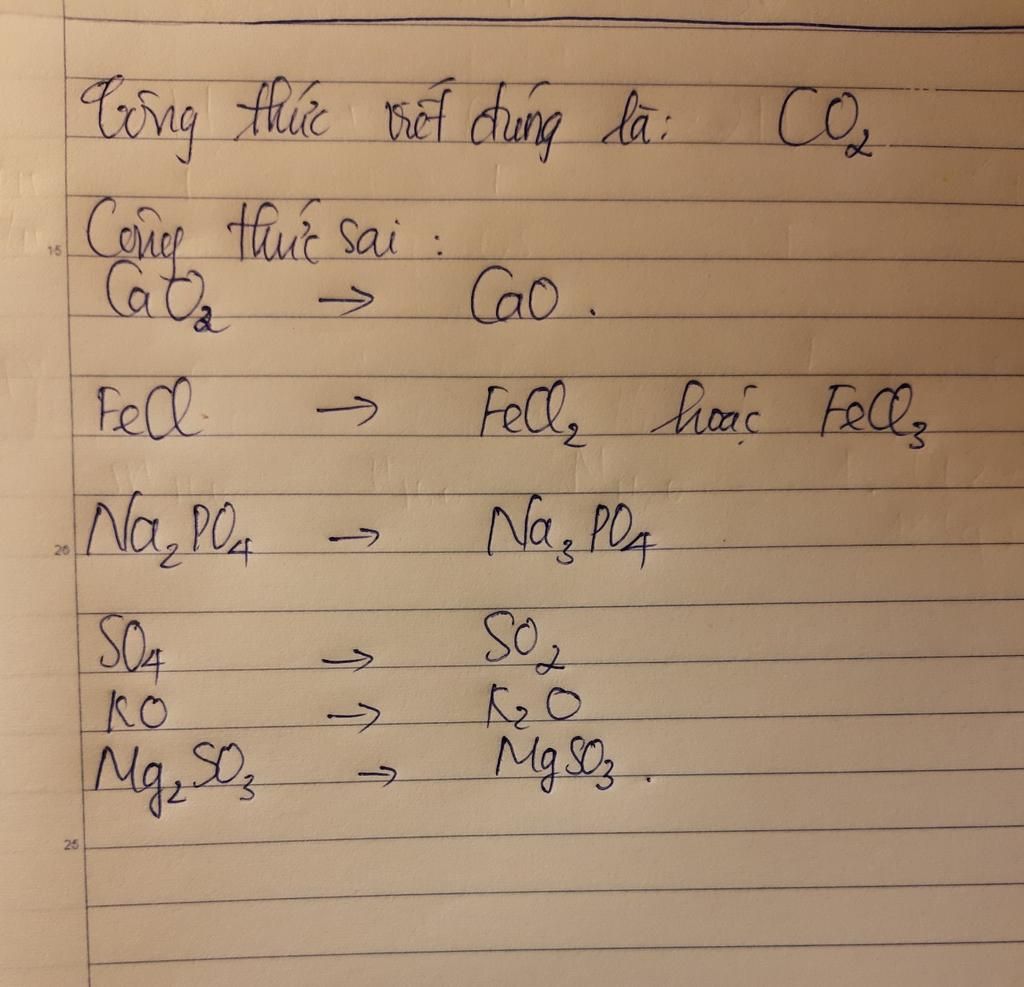 Công thức viết đúng là: CO₂
15
Công thức sai :
CaO₂ → CaO .
FeCl → FeCl₂ hoặc FeCl₃
20
Na₂PO₄ → Na₃PO₄
SO₄ → SO₂
KO → K₂O
Mg₂SO₃ → MgSO₃ .
25